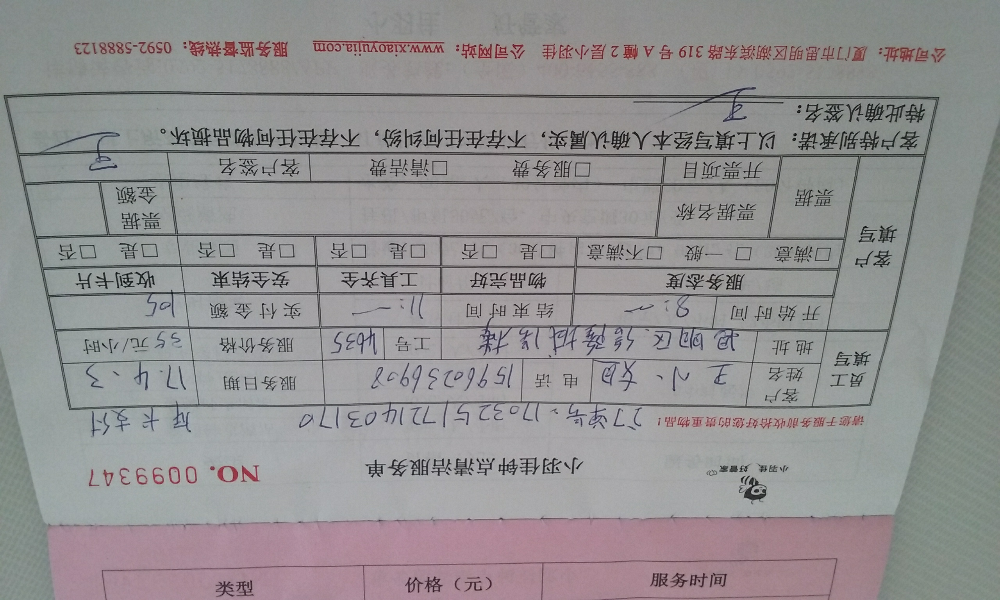 小羽佳 好管家
小羽佳钟点清洁服务单 NO. 0099347
请您于服务前收拾好您的贵重物品! 订单号:1703251721403170 库卡支付
员工填写 客户姓名 王小 电话 15960236908 服务日期 17.4.3
地址 思明区 工号 4635 服务价格 35元/小时
客户填写 开始时间 8:~ 结束时间 11:~ 实付金额 105
服务态度 物品完好 工具齐全 安全结束 收到卡片
□满意 □一般 □不满意 □是 □否 □是 □否 □是 □否 □是 □否
票据 票据名称 票据金额
开票项目 □服务费 □清洁费 客户签名 王
客户特别承诺:以上填写经本人确认属实,不存在任何纠纷,不存在任何物品损坏。
特此确认签名: 王
公司地址:厦门市思明区湖滨东路 319 号 A 幢 2 层小羽佳 公司网站:www.xiaoyujia.com 服务监督热线:0592-5888123
类型 价格(元) 服务时间